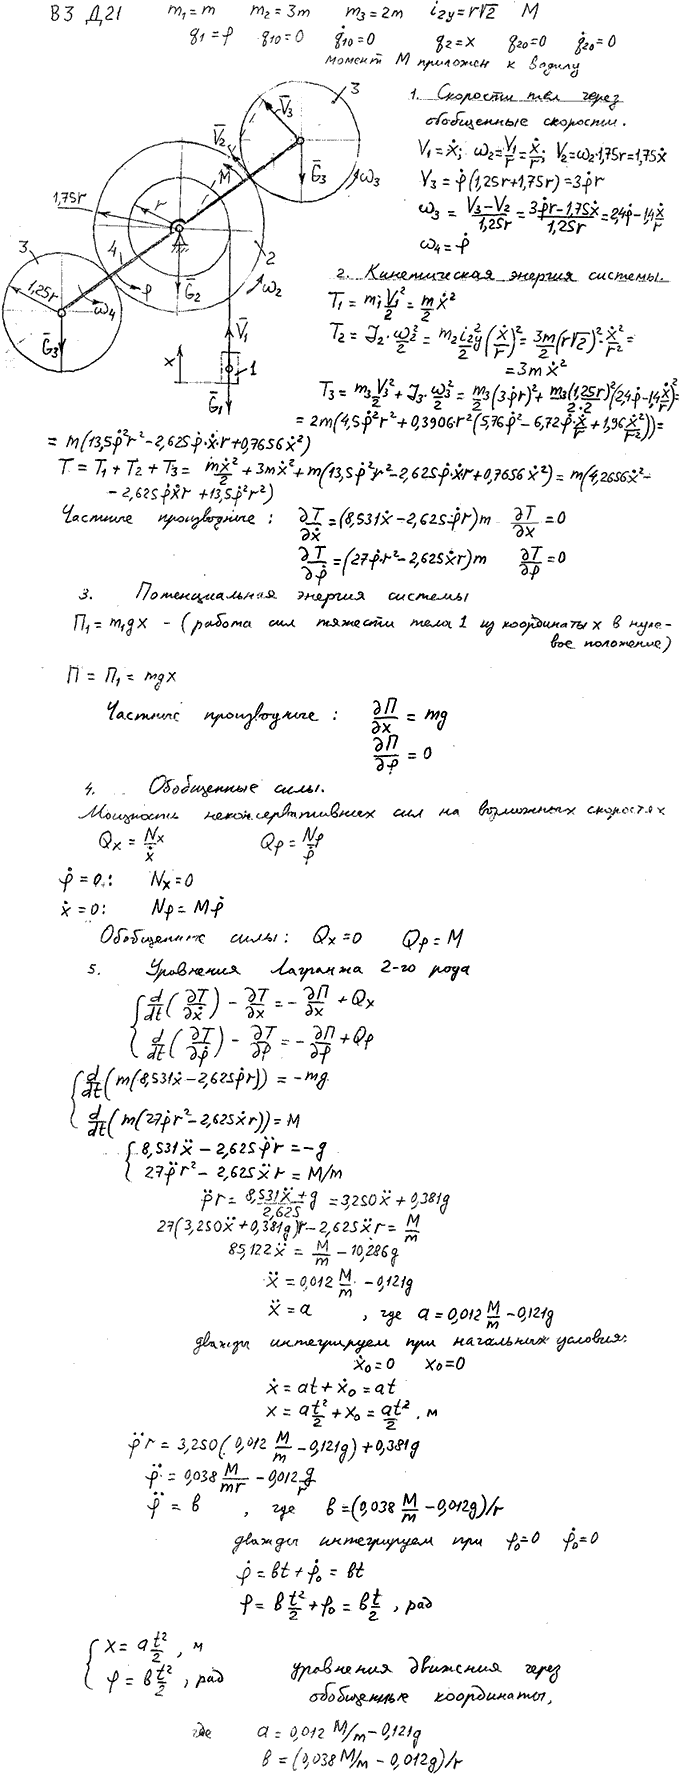 В3 Д21 m₁=m m₂=3m m₃=2m i₂y=r√2 M
q₁=φ q₁₀=0 q̇₁₀=0 q₂=x q₂₀=0 q̇₂₀=0
момент M приложен к водилу
3
V̄₃
V̄₂
M̄
Ḡ₃
ω₃
1,75r
r
3
4
2
1,25r
φ
Ḡ₂
ω₂
ω₄
Ḡ₃
V̄₁
x
1
Ḡ₁
1. Скорости тел через
обобщенные скорости.
V₁=ẋ; ω₂=V₁/r=ẋ/r; V₂=ω₂·1,75r=1,75ẋ
V₃=φ̇(1,25r+1,75r)=3φ̇r
ω₃ = (V₃-V₂)/1,25r = (3φ̇r-1,75ẋ)/1,25r = 2,4φ̇-1,4ẋ/r
ω₄=φ̇
2. Кинетическая энергия системы.
T₁ = m₁V₁²/2 = m/2 ẋ²
T₂ = J₂·ω₂²/2 = m₂i₂y²/2 (ẋ/r)² = 3m/2 (r√2)²·ẋ²/r² =
= 3mẋ²
T₃ = m₃V₃²/2 + J₃·ω₃²/2 = m₃/2 (3φ̇r)² + m₃(1,25r)²/2·2 (2,4φ̇-1,4ẋ/r)² =
= 2m(4,5φ̇²r²+0,3906·r²(5,76φ̇²-6,72φ̇·ẋ/r+1,96ẋ²/r²))=
= m(13,5φ̇²r²-2,625φ̇·ẋ·r+0,7656ẋ²)
T = T₁+T₂+T₃ = mẋ²/2+3mẋ²+m(13,5φ̇²r²-2,625φ̇ẋr+0,7656ẋ²) = m(4,2656ẋ²-
-2,625φ̇ẋr+13,5φ̇²r²)
Частные производные: ∂T/∂ẋ=(8,531ẋ-2,625φ̇r)m ∂T/∂x=0
∂T/∂φ̇=(27φ̇r²-2,625ẋr)m ∂T/∂φ=0
3. Потенциальная энергия системы
П₁=m₁gx - (работа сил тяжести тела 1 из координаты x в нуле-
вое положение)
П = П₁ = mgx
Частные производные: ∂П/∂x = mg
∂П/∂φ = 0
4. Обобщенные силы.
Мощности неконсервативных сил на возможных скоростях
Qx = Nx/ẋ Qφ = Nφ/φ̇
φ̇=0: Nx=0
ẋ=0: Nφ=Mφ̇
Обобщенные силы: Qx=0 Qφ=M
5. Уровнения Лагранжа 2-го рода
{ d/dt(∂T/∂ẋ) - ∂T/∂x = -∂П/∂x + Qx
d/dt(∂T/∂φ̇) - ∂T/∂φ = -∂П/∂φ + Qφ
{ d/dt(m(8,531ẋ-2,625φ̇r)) = -mg
d/dt(m(27φ̇r²-2,625ẋr)) = M
{ 8,531ẍ-2,625φ̈r=-g
27φ̈r²-2,625ẍr=M/m
φ̈r = (8,531ẍ+g)/2,625 = 3,250ẍ+0,381g
27(3,250ẍ+0,381g)r-2,625ẍr=M/m
85,122ẍ = M/m - 10,286g
ẍ = 0,012 M/m - 0,121g
ẍ = a , где a=0,012 M/m - 0,121g
дважды интегрируем при начальных условиях:
ẋ₀=0 x₀=0
ẋ = at+ẋ₀=at
x = at²/2+x₀=at²/2, м
φ̈r=3,250(0,012 M/m-0,121g)+0,381g
φ̈ = 0,038 M/mr - 0,012 g/r
φ̈ = в , где в=(0,038 M/m-0,012g)/r
дважды интегрируем при φ₀=0 φ̇₀=0
φ̇ = вt+φ̇₀ = вt
φ = в t²/2+φ₀ = в t/2, рад
{ x = a t²/2, м
φ = в t²/2, рад уровнения движения через
обобщенные координаты,
где a = 0,012 M/m-0,121g
в = (0,038 M/m - 0,012g)/r